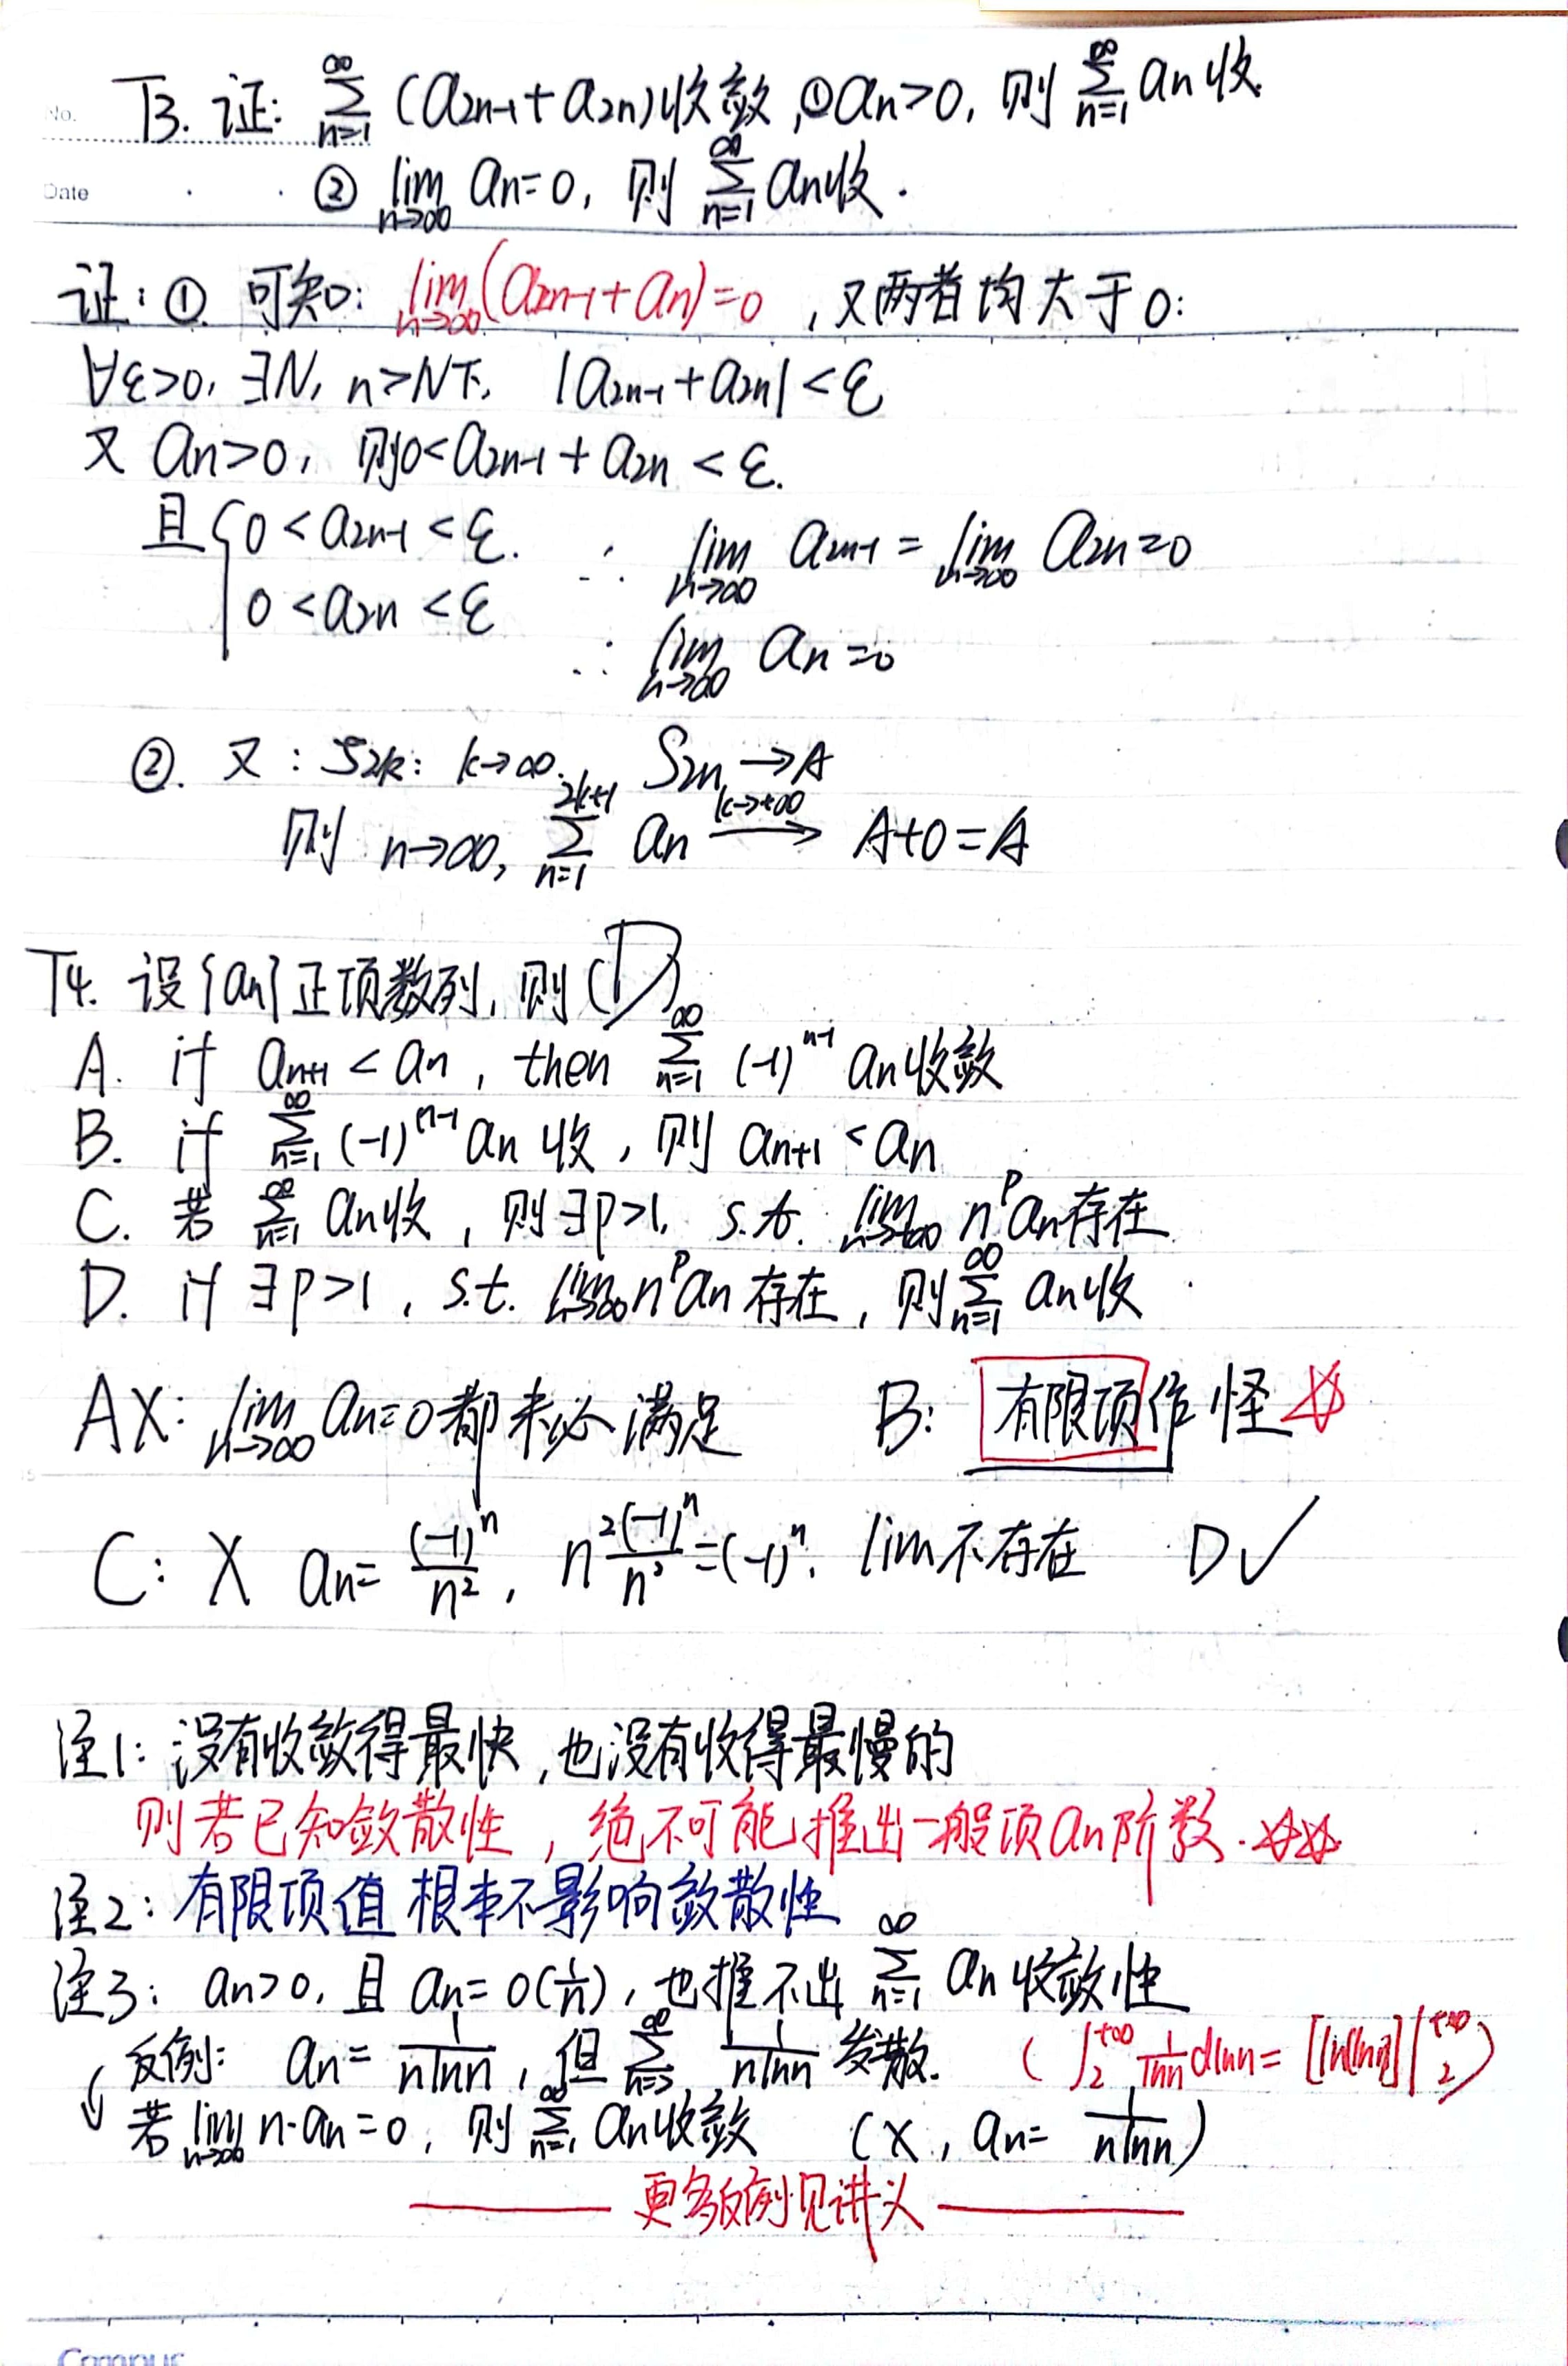 No.
T3. 证: ∑_{n=1}^{∞} (a_{2n-1}+a_{2n})收敛, ①a_n>0, 则 ∑_{n=1}^{∞} a_n收.
Date
② lim_{n→∞} a_n=0, 则 ∑_{n=1}^{∞} a_n收.
证: ① 可知: lim_{n→∞}(a_{2n-1}+a_n)=0, 又两者均大于0:
∀ε>0, ∃N, n>N下, |a_{2n-1}+a_{2n}|<ε
又 a_n>0, 则0<a_{2n-1}+a_{2n}<ε.
且{0<a_{2n-1}<ε. ∴ lim_{n→∞} a_{2n-1}=lim_{n→∞} a_{2n}=0
0<a_{2n}<ε ∴ lim_{n→∞} a_n=0
②. 又: S_{2k}: k→∞. S_{2n}→A
则 n→∞, ∑_{n=1}^{2k+1} a_n \xrightarrow{k→+∞} A+0=A
T4. 设{a_n}正项数列, 则(D)
A. if a_{n+1}<a_n, then ∑_{n=1}^{∞} (-1)^{n-1} a_n收敛
B. if ∑_{n=1}^{∞} (-1)^{n-1} a_n 收, 则 a_{n+1}<a_n
C. 若 ∑_{n=1}^{∞} a_n收, 则∃p>1, s.t. lim_{n→∞} n^p a_n存在
D. if ∃p>1, s.t. lim_{n→∞} n^p a_n 存在, 则∑_{n=1}^{∞} a_n收
AX: lim_{n→∞} a_n=0都未必满足 B: 有限项作怪☆
C: X a_n=\frac{(-1)^n}{n^2}, n^2\frac{(-1)^n}{n^2}=(-1)^n. lim不存在 D✓
注1: 没有收敛得最快, 也没有收得最慢的
则若已知敛散性, 绝不可能推出一般项a_n阶数.☆☆
注2: 有限项值根本不影响敛散性
注3: a_n>0, 且 a_n=o(\frac{1}{n}), 也推不出 ∑_{n=1}^{∞} a_n 收敛性
反例: a_n=\frac{1}{nlnn}, 但 ∑_{n=2}^{∞} \frac{1}{nlnn} 发散. (∫_2^{+∞} \frac{1}{lnn}dlnn=[ln(lnn)]|_2^{+∞})
若 lim_{n→∞} n·a_n=0, 则 ∑_{n=1}^{∞} a_n收敛 (X, a_n=\frac{1}{nlnn})
—— 更多反例见讲义 ——
Campus